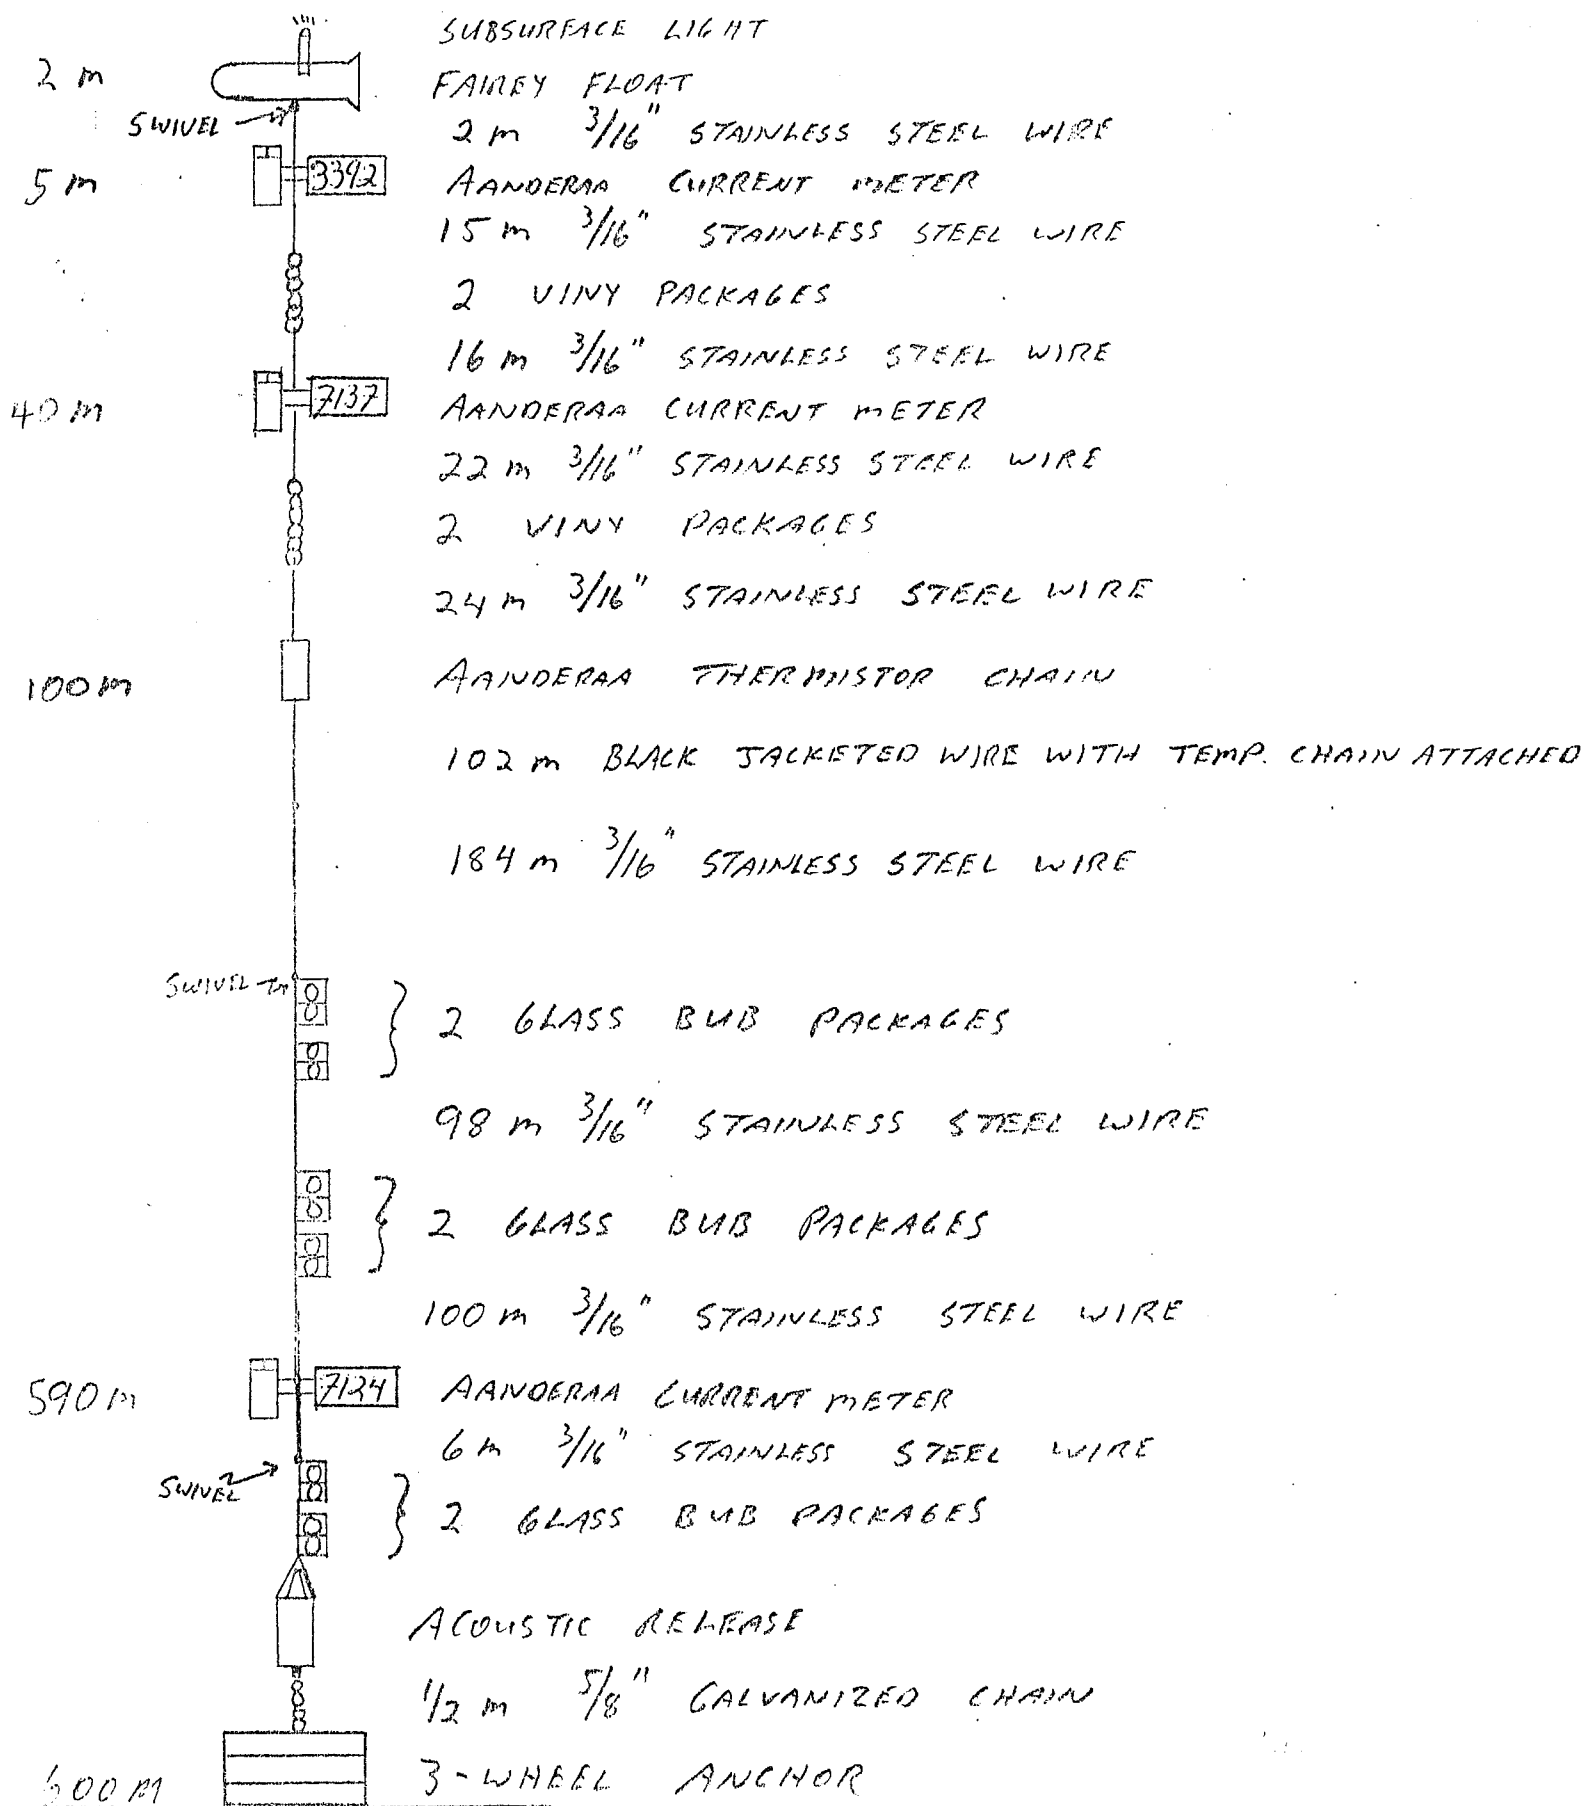 SUBSURFACE LIGHT
2 m FAIREY FLOAT
SWIVEL 2 m 3/16" STAINLESS STEEL WIRE
5 m 3392 AANDERAA CURRENT METER
15 m 3/16" STAINLESS STEEL WIRE
2 VINY PACKAGES
16 m 3/16" STAINLESS STEEL WIRE
40 m 7137 AANDERAA CURRENT METER
22 m 3/16" STAINLESS STEEL WIRE
2 VINY PACKAGES
24 m 3/16" STAINLESS STEEL WIRE
100 m AANDERAA THERMISTOR CHAIN
102 m BLACK JACKETED WIRE WITH TEMP. CHAIN ATTACHED
184 m 3/16" STAINLESS STEEL WIRE
SWIVEL
2 GLASS BUB PACKAGES
98 m 3/16" STAINLESS STEEL WIRE
2 GLASS BUB PACKAGES
100 m 3/16" STAINLESS STEEL WIRE
590 m 7124 AANDERAA CURRENT METER
6 m 3/16" STAINLESS STEEL WIRE
SWIVEL 2 GLASS BUB PACKAGES
ACOUSTIC RELEASE
1/2 m 5/8" GALVANIZED CHAIN
600 M 3-WHEEL ANCHOR